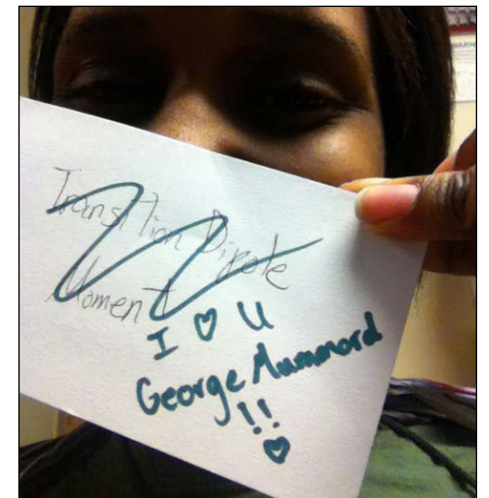 Transition Pirate
Moment
I ♡ U
George Mummord
!!
♡
WARN